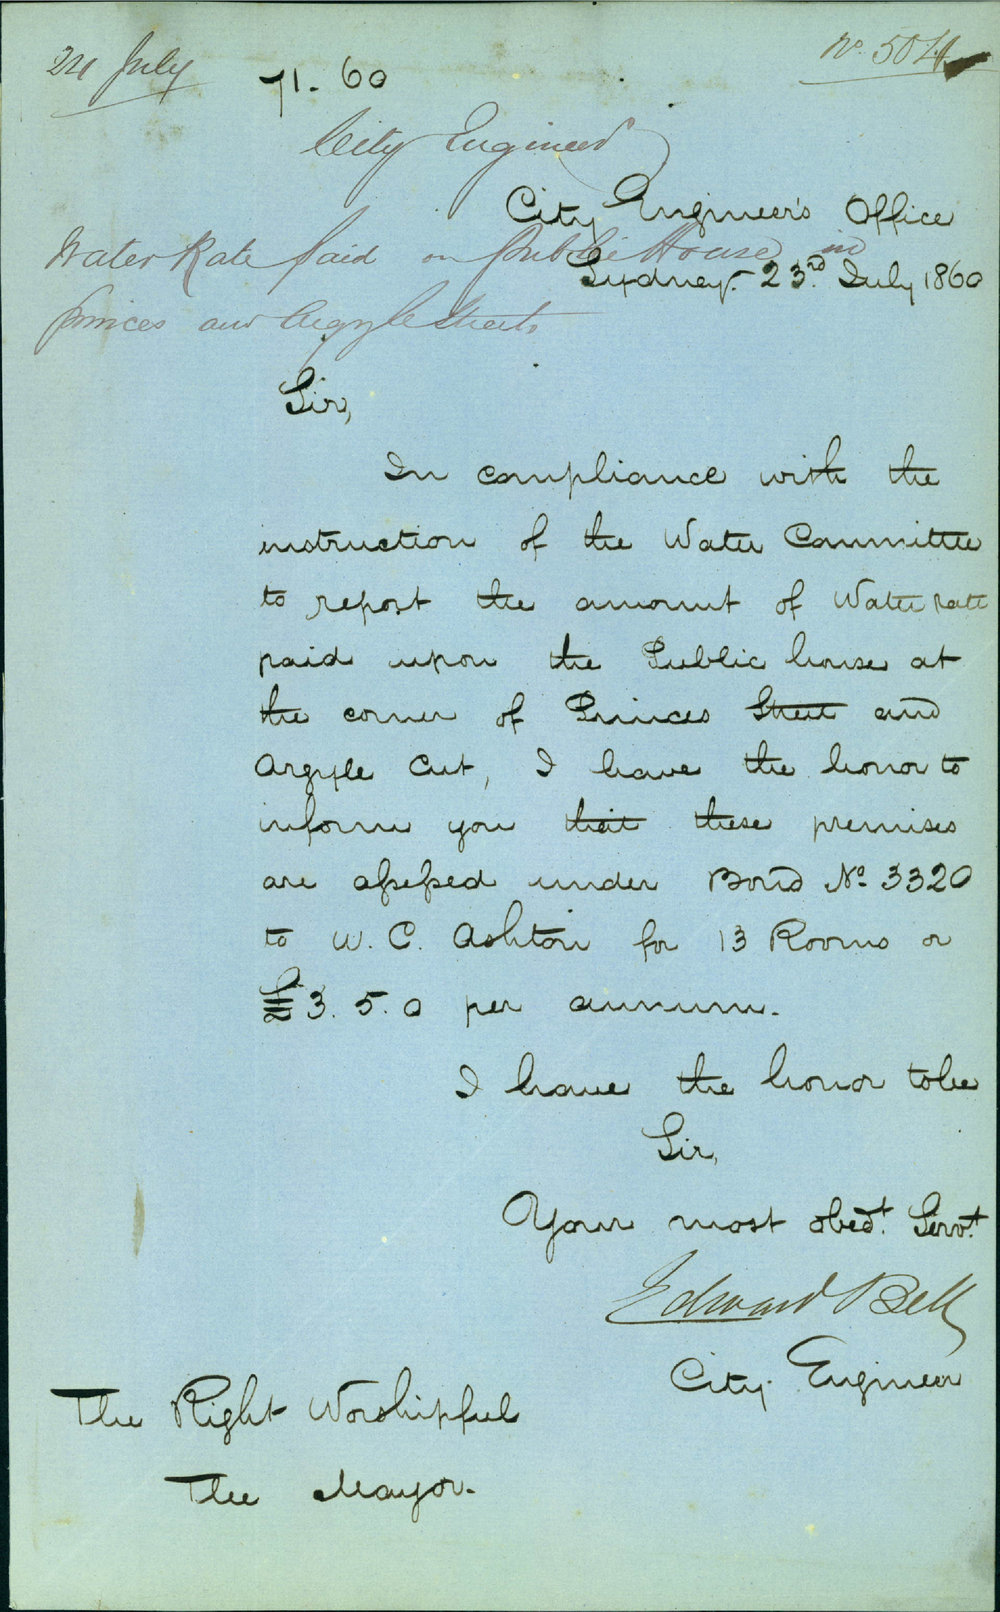 24 July
No. 504
71.60
City Engineer
City Engineer's Office
Water Rate paid on public House in
Sydney. 23rd. July 1860
Princes and Argyle Streets
Sir,
In compliance with the
instruction of the Water Committee
to report the amount of Water rate
paid upon the Public house at
the corner of Princes Street and
Argyle Cut, I have the honor to
inform you that these premises
are assessed under Bond No. 3320
to W. C. Ashton for 13 Rooms or
£3.5.0 per annum.
I have the honor to be
Sir,
Your most obedt. Servt.
Edward Bell
City Engineer
The Right Worshipful
The Mayor.